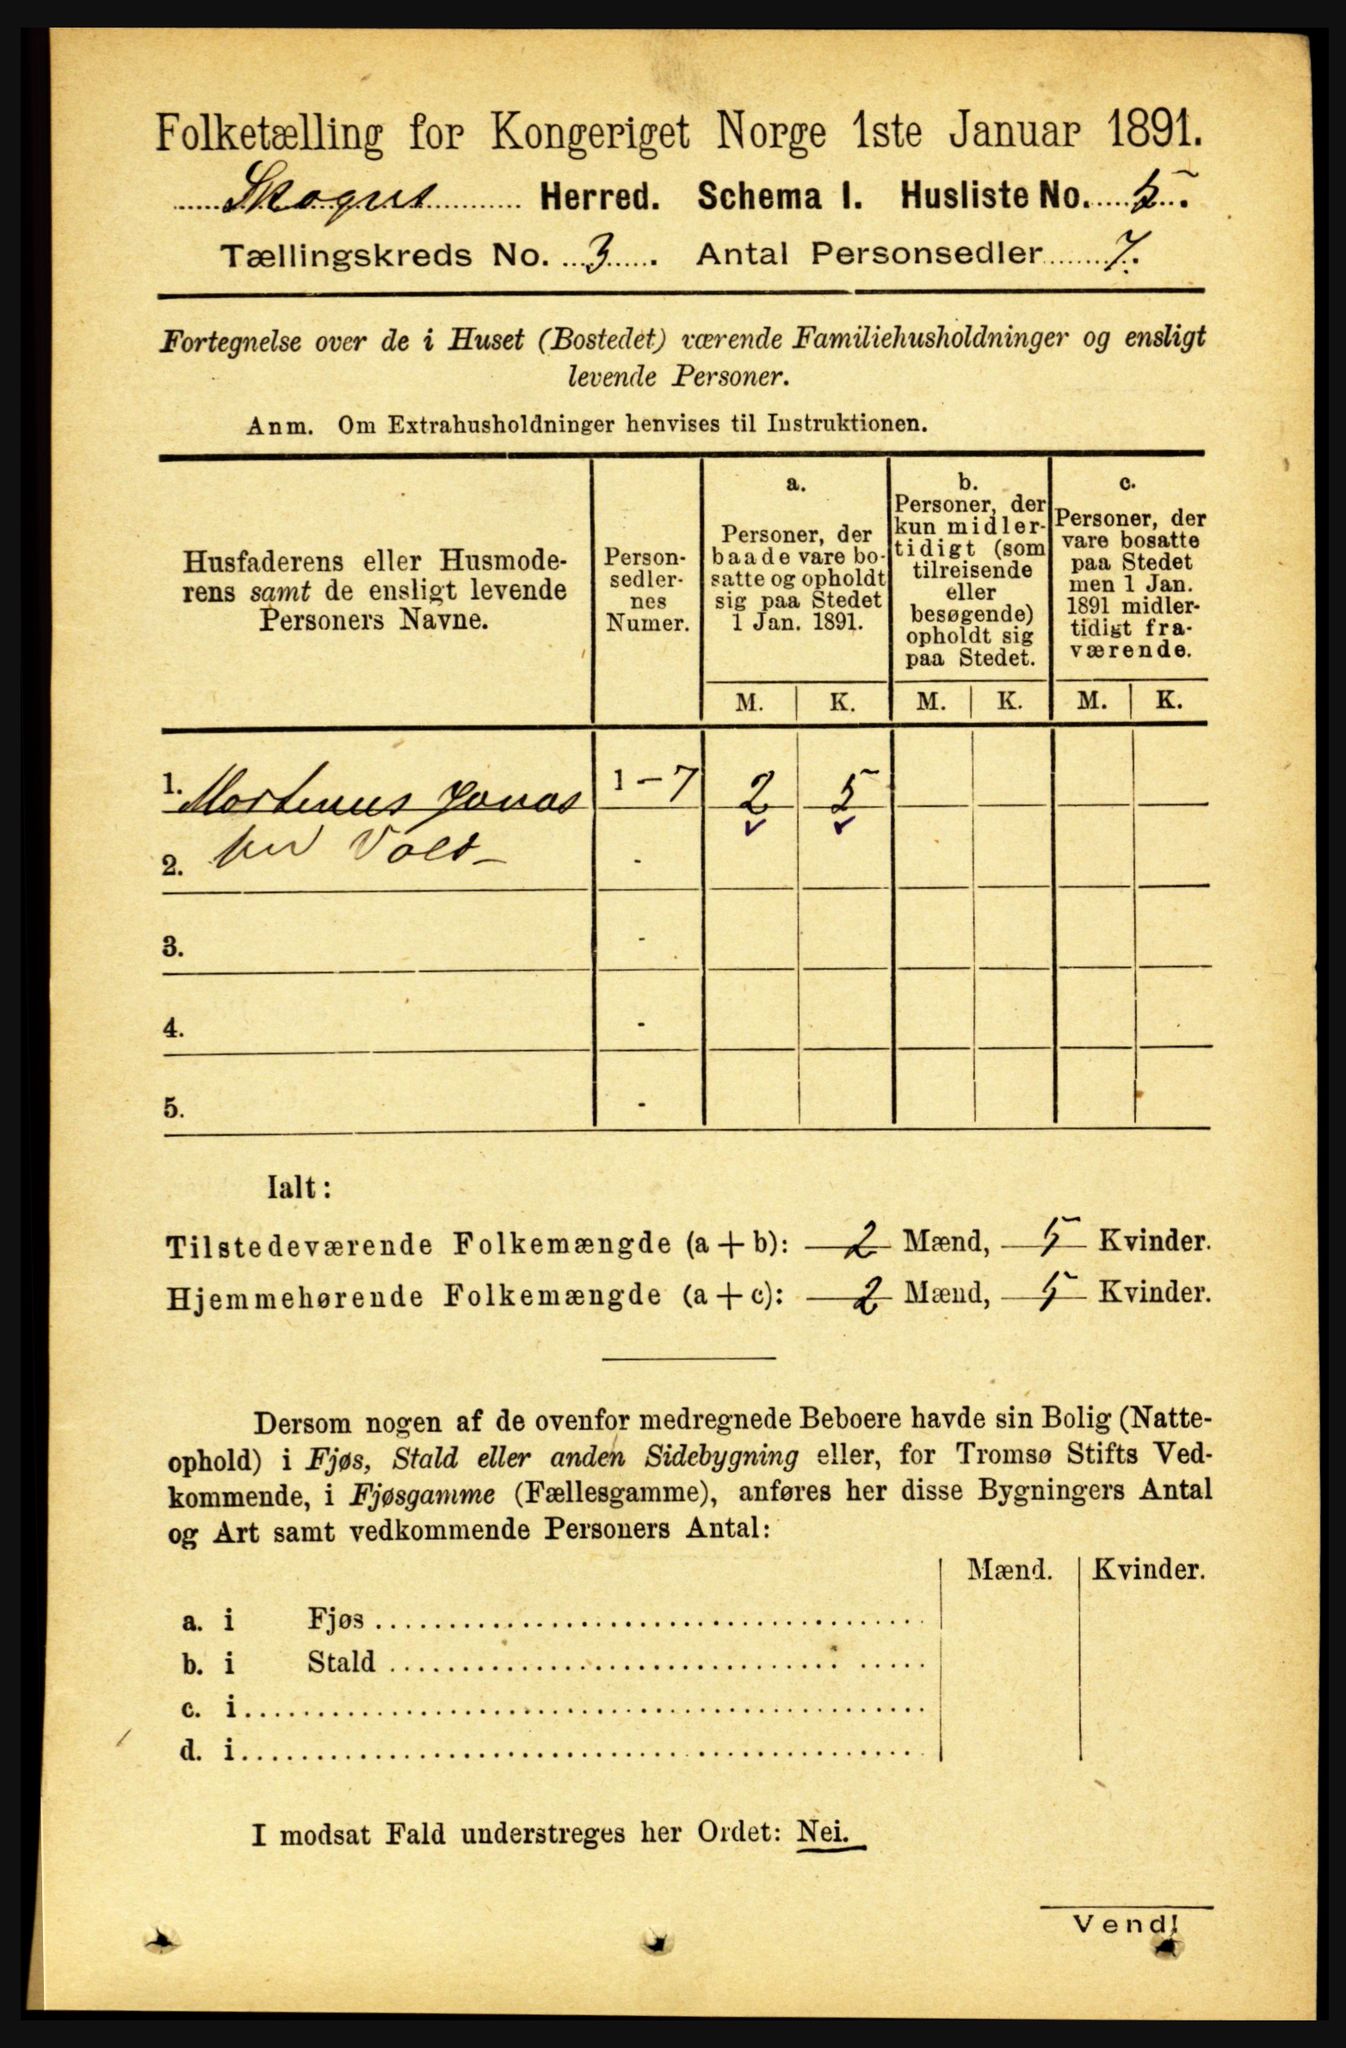 Folketælling for Kongeriget Norge 1ste Januar 1891.
Skogns Herred. Schema I. Husliste No. 5.
Tællingskreds No. 3. Antal Personsedler 7.
Fortegnelse over de i Huset (Bostedet) værende Familiehusholdninger og ensligt
levende Personer.
Anm. Om Extrahusholdninger henvises til Instruktionen.
Husfaderens eller Husmode-
rens samt de ensligt levende
Personers Navne.
Person-
sedler-
nes
Numer.
a.
Personer, der
baade vare bo-
satte og opholdt
sig paa Stedet
1 Jan. 1891.
b.
Personer, der
kun midler-
tidigt (som
tilreisende
eller
besøgende)
opholdt sig
paa Stedet.
c.
Personer, der
vare bosatte
paa Stedet
men 1 Jan.
1891 midler-
tidigt fra-
værende.
M. K. M. K. M. K.
1. Mortinus Jonas 1 - 7 2 5
2. sen Vold -
3. -
4. -
5. -
Ialt:
Tilstedeværende Folkemængde (a + b): 2 Mænd, 5 Kvinder.
Hjemmehørende Folkemængde (a + c): 2 Mænd, 5 Kvinder.
Dersom nogen af de ovenfor medregnede Beboere havde sin Bolig (Natte-
ophold) i Fjøs, Stald eller anden Sidebygning eller, for Tromsø Stifts Ved-
kommende, i Fjøsgamme (Fællesgamme), anføres her disse Bygningers Antal
og Art samt vedkommende Personers Antal:
Mænd. Kvinder.
a. i Fjøs
b. i Stald
c. i
d. i
I modsat Fald understreges her Ordet: Nei.
Vend!